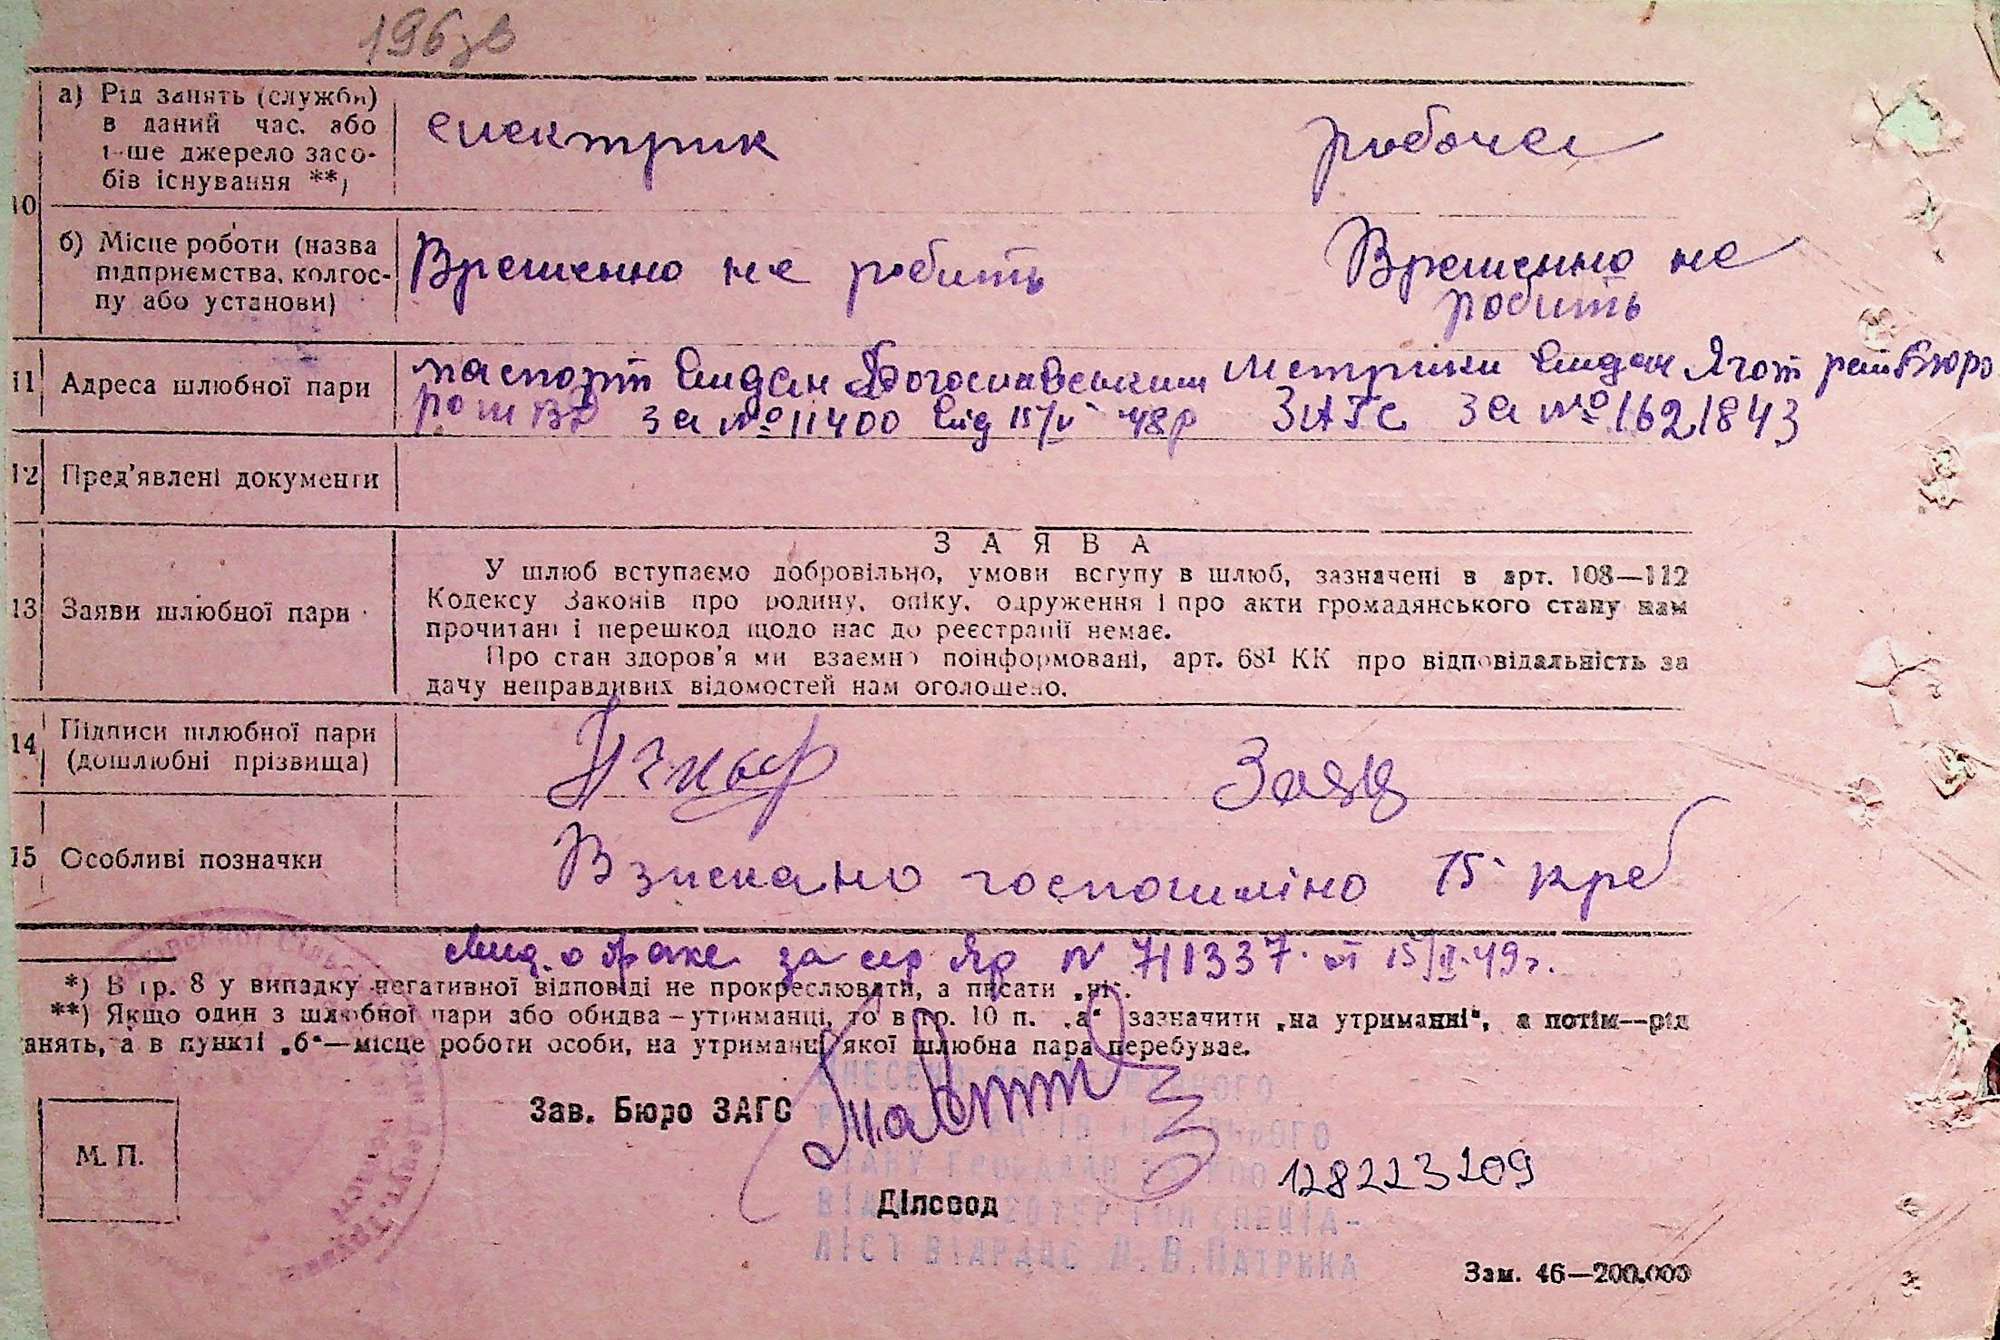 196зв
а) Рід занять (служби) в даний час, або інше джерело засобів існування **)
електрик
робочея
10
б) Місце роботи (назва підприємства, колгоспу або установи)
Временно не робить
Временно не
робить
11 Адреса шлюбної пари
паспорт видан Богославським
метрики видан Ягот рай Бюро
за № 11400 від 15/V 48р
ЗАГС за № 1621843
12 Пред'явлені документи
ЗАЯВА
13 Заяви шлюбної пари
У шлюб вступаємо добровільно, умови вступу в шлюб, зазначені в арт. 108—112
Кодексу Законів про родину, опіку, одруження і про акти громадянського стану нам
прочитані і перешкод щодо нас до реєстрації немає.
Про стан здоров'я ми взаємно поінформовані, арт. 68¹ КК про відповідальність за
дачу неправдивих відомостей нам оголошено.
14 Підписи шлюбної пари (дошлюбні прізвища)
Заяц
15 Особливі позначки
Взискано госпошліно 15 крб
о браке за сер Яр N 711337 от 15/II-49г.
*) В гр. 8 у випадку негативної відповіді не прокреслювати, а писати „ні“.
**) Якщо один з шлюбної пари або обидва – утриманці, то в гр. 10 п. „а“ зазначити „на утриманні“, а потім—рід
анять, а в пункті „б“—місце роботи особи, на утриманці якої шлюбна пара перебуває.
Зав. Бюро ЗАГС
М. П.
128223209
Діловод
ЛІСТ ВІДРАЦС Н.В.ПАТРИКА
Зам. 46—200.000